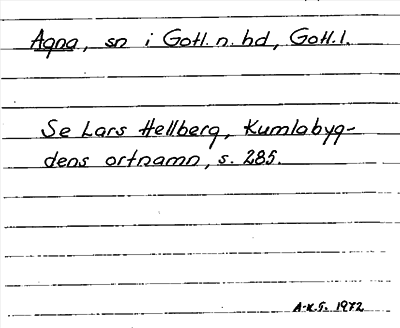 Agna, sn i Gotl. n. hd, Gotl. l.
Se Lars Hellberg, Kumlabyg-
dens ortnamn, s. 285.
A-K.S. 1972